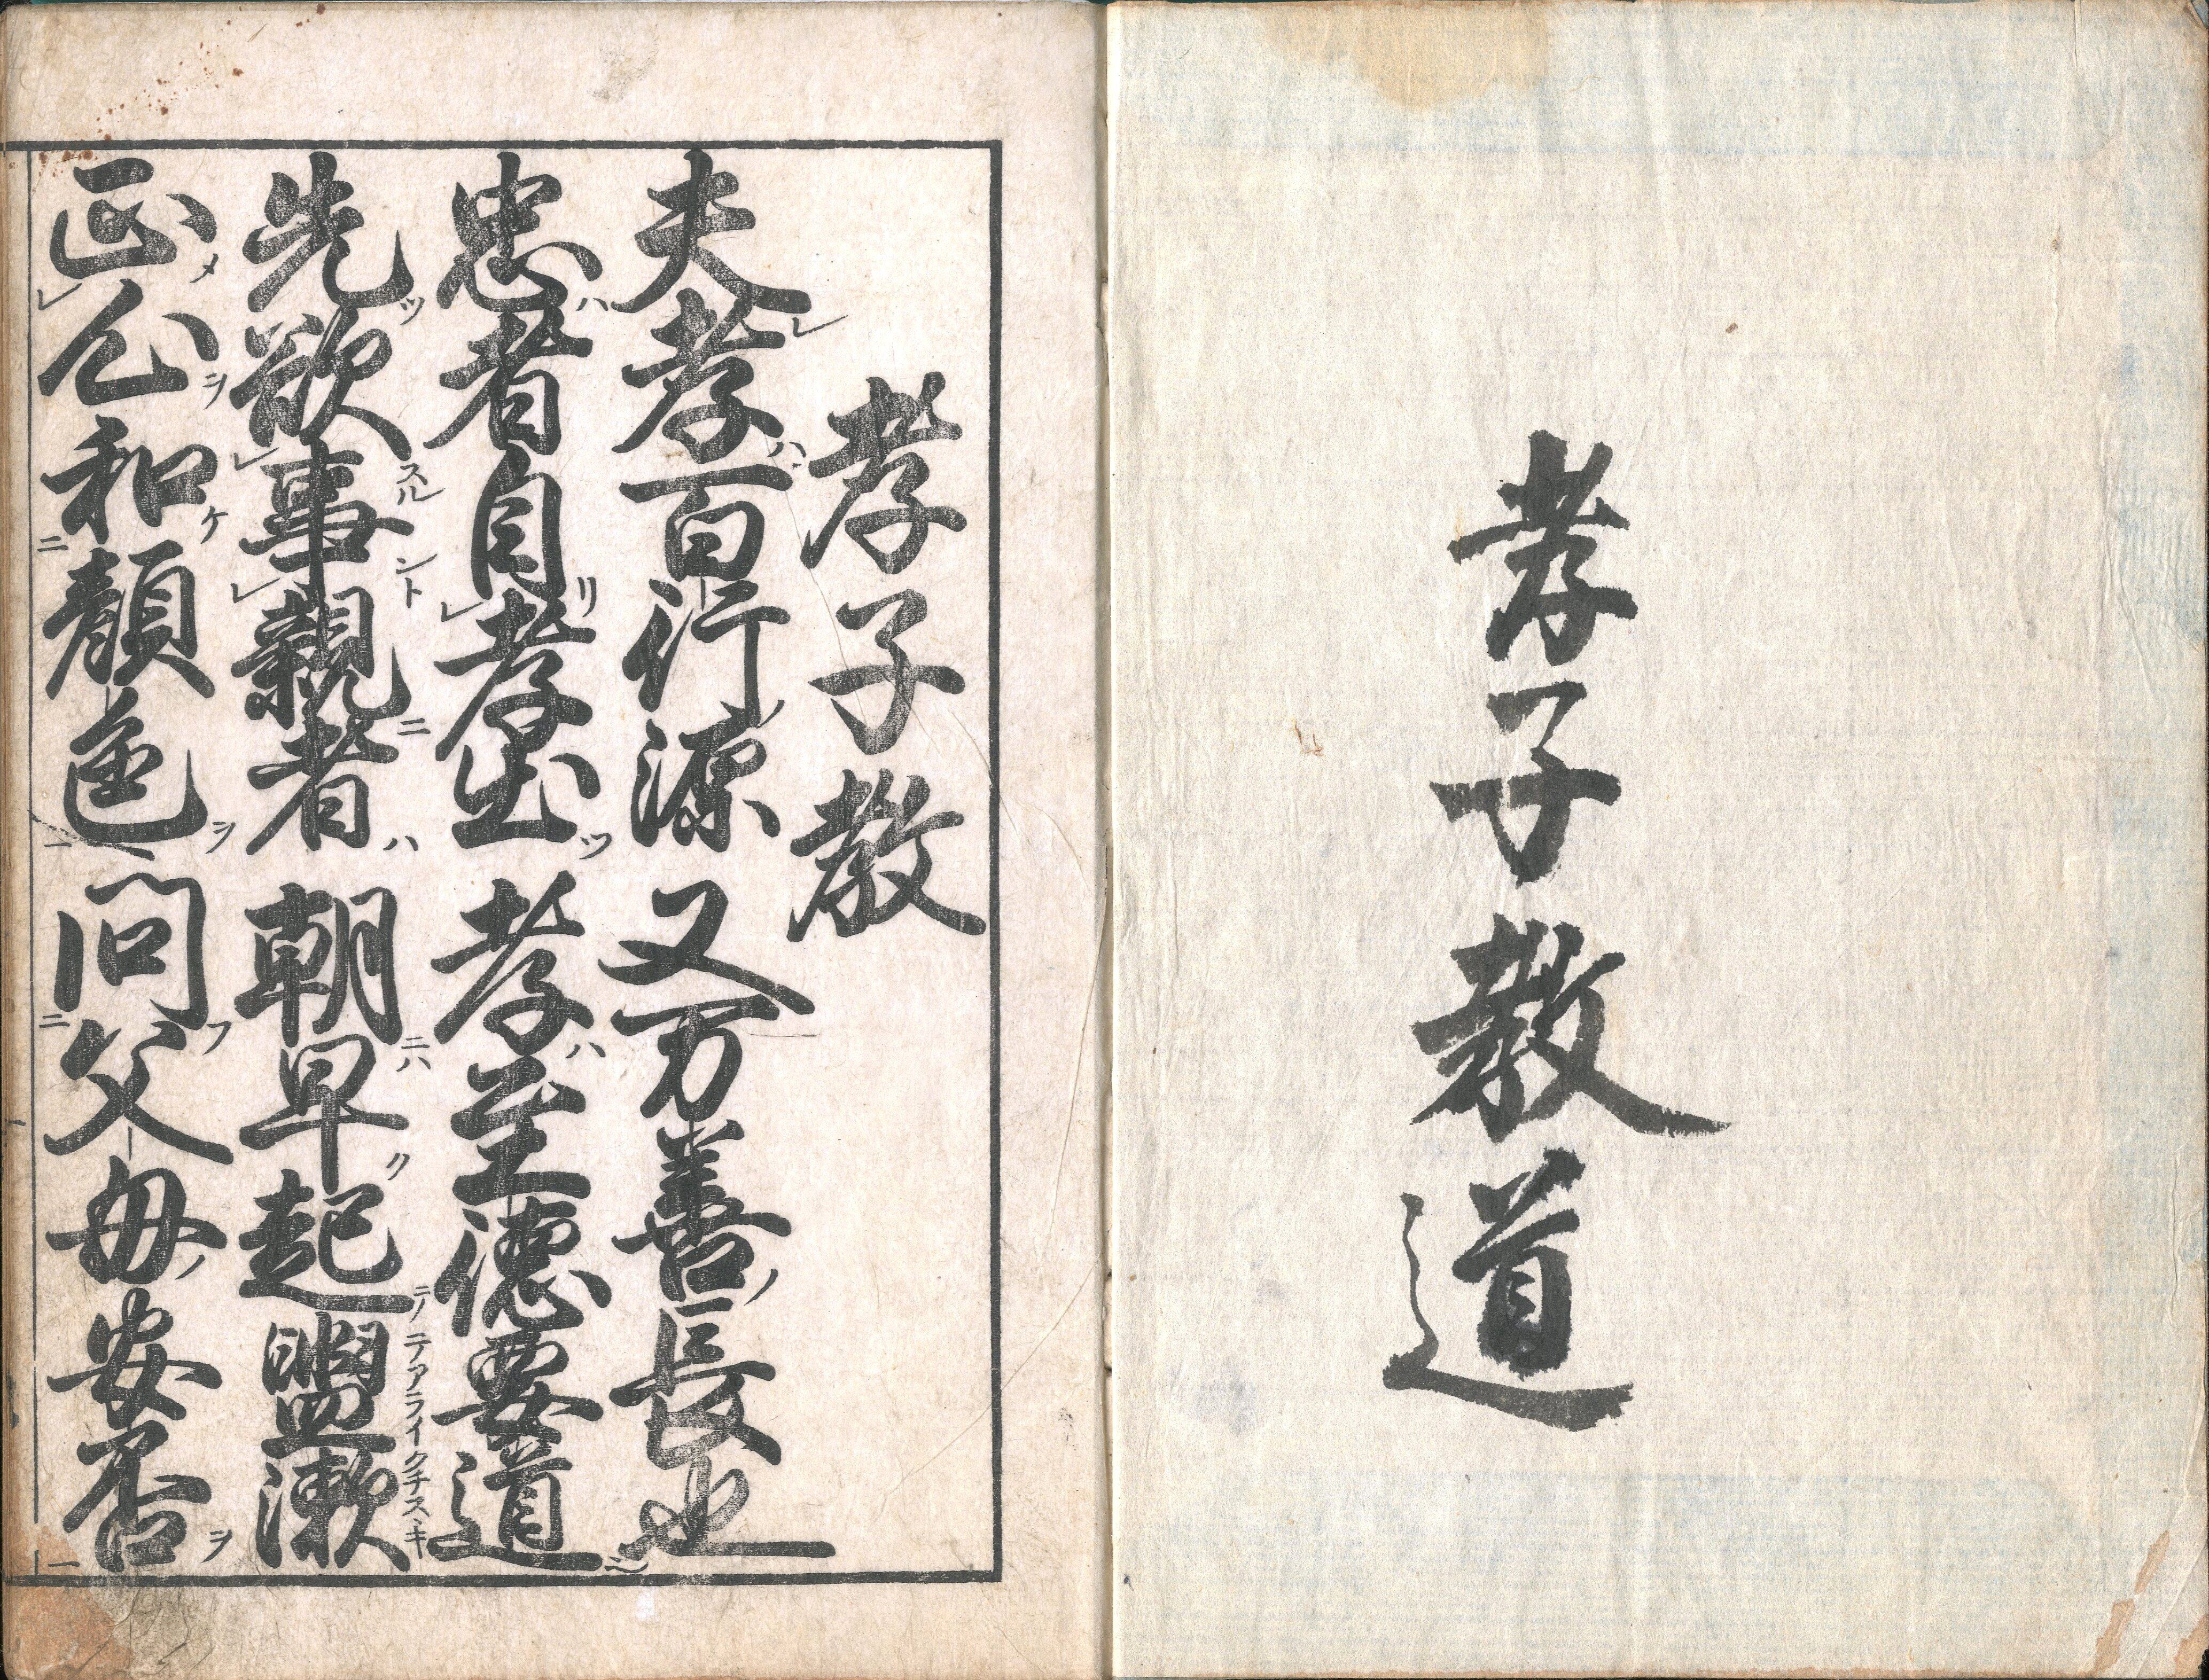 孝子教道
孝子教
夫孝百行源 又万善長也
忠者自孝出 孝至徳要道
先欲事親者 朝早起盥漱
正心和顔色 問父母安否